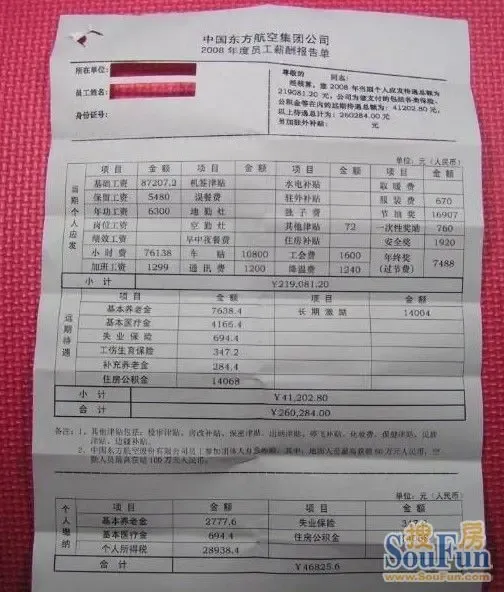 中国东方航空集团公司
2008年度员工薪酬报告单
所在单位:
员工姓名:
身份证号:
尊敬的 同志:
经核算，您2008年当期个人应发待遇总额为:
219081.20元，公司为您支付的包括各类保险、
公积金等在内的远期待遇总额为: 41202.80元，
以上待遇总计为: 260284.00元。
另加驻外补贴: 元
单位: 元 (人民币)
当期个人应发
项目 金额 项目 金额 项目 金额 项目 金额
基础工资 87207.2 机签津贴 水电补贴 取暖费
保留工资 5480 误餐费 驻外补贴 服装费 670
年功工资 6300 地勤灶 独子费 节油奖 16907
岗位工资 空勤灶 其他津贴 72 一次性奖励 760
绩效工资 早中夜餐费 住房补贴 安全奖 1920
小时费 76138 车贴 10800 工会费 1600 年终奖 (过节费) 7488
加班工资 1299 通讯费 1200 降温费 1240
小计 ¥219,081.20
远期待遇
项目 金额 项目 金额
基本养老金 7638.4 长期激励 14004
基本医疗金 4166.4
失业保险 694.4
工伤生育保险 347.2
补充养老金 284.4
住房公积金 14068
小计 ¥41,202.80
合计 ¥260,284.00
备注: 1、其他津贴包括:
单位: 元 (人民币)
个人缴纳
项目 金额 项目 金额
基本养老金 2777.6 失业保险
基本医疗金 694.4 住房公积金
个人所得税 28938.4
合计 ¥46825.6
搜房
SouFun
www.SouFun.com